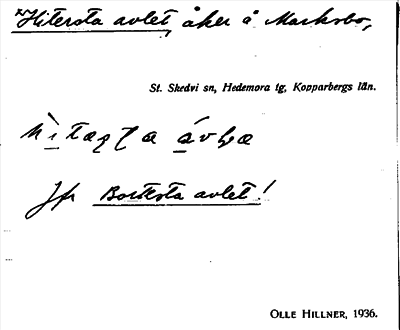 Hitersta avlet, åker å Marksbo,
St. Skedvi sn, Hedemora tg, Kopparbergs län.
Jfr Bortersta avlet!
OLLE HILLNER, 1936.